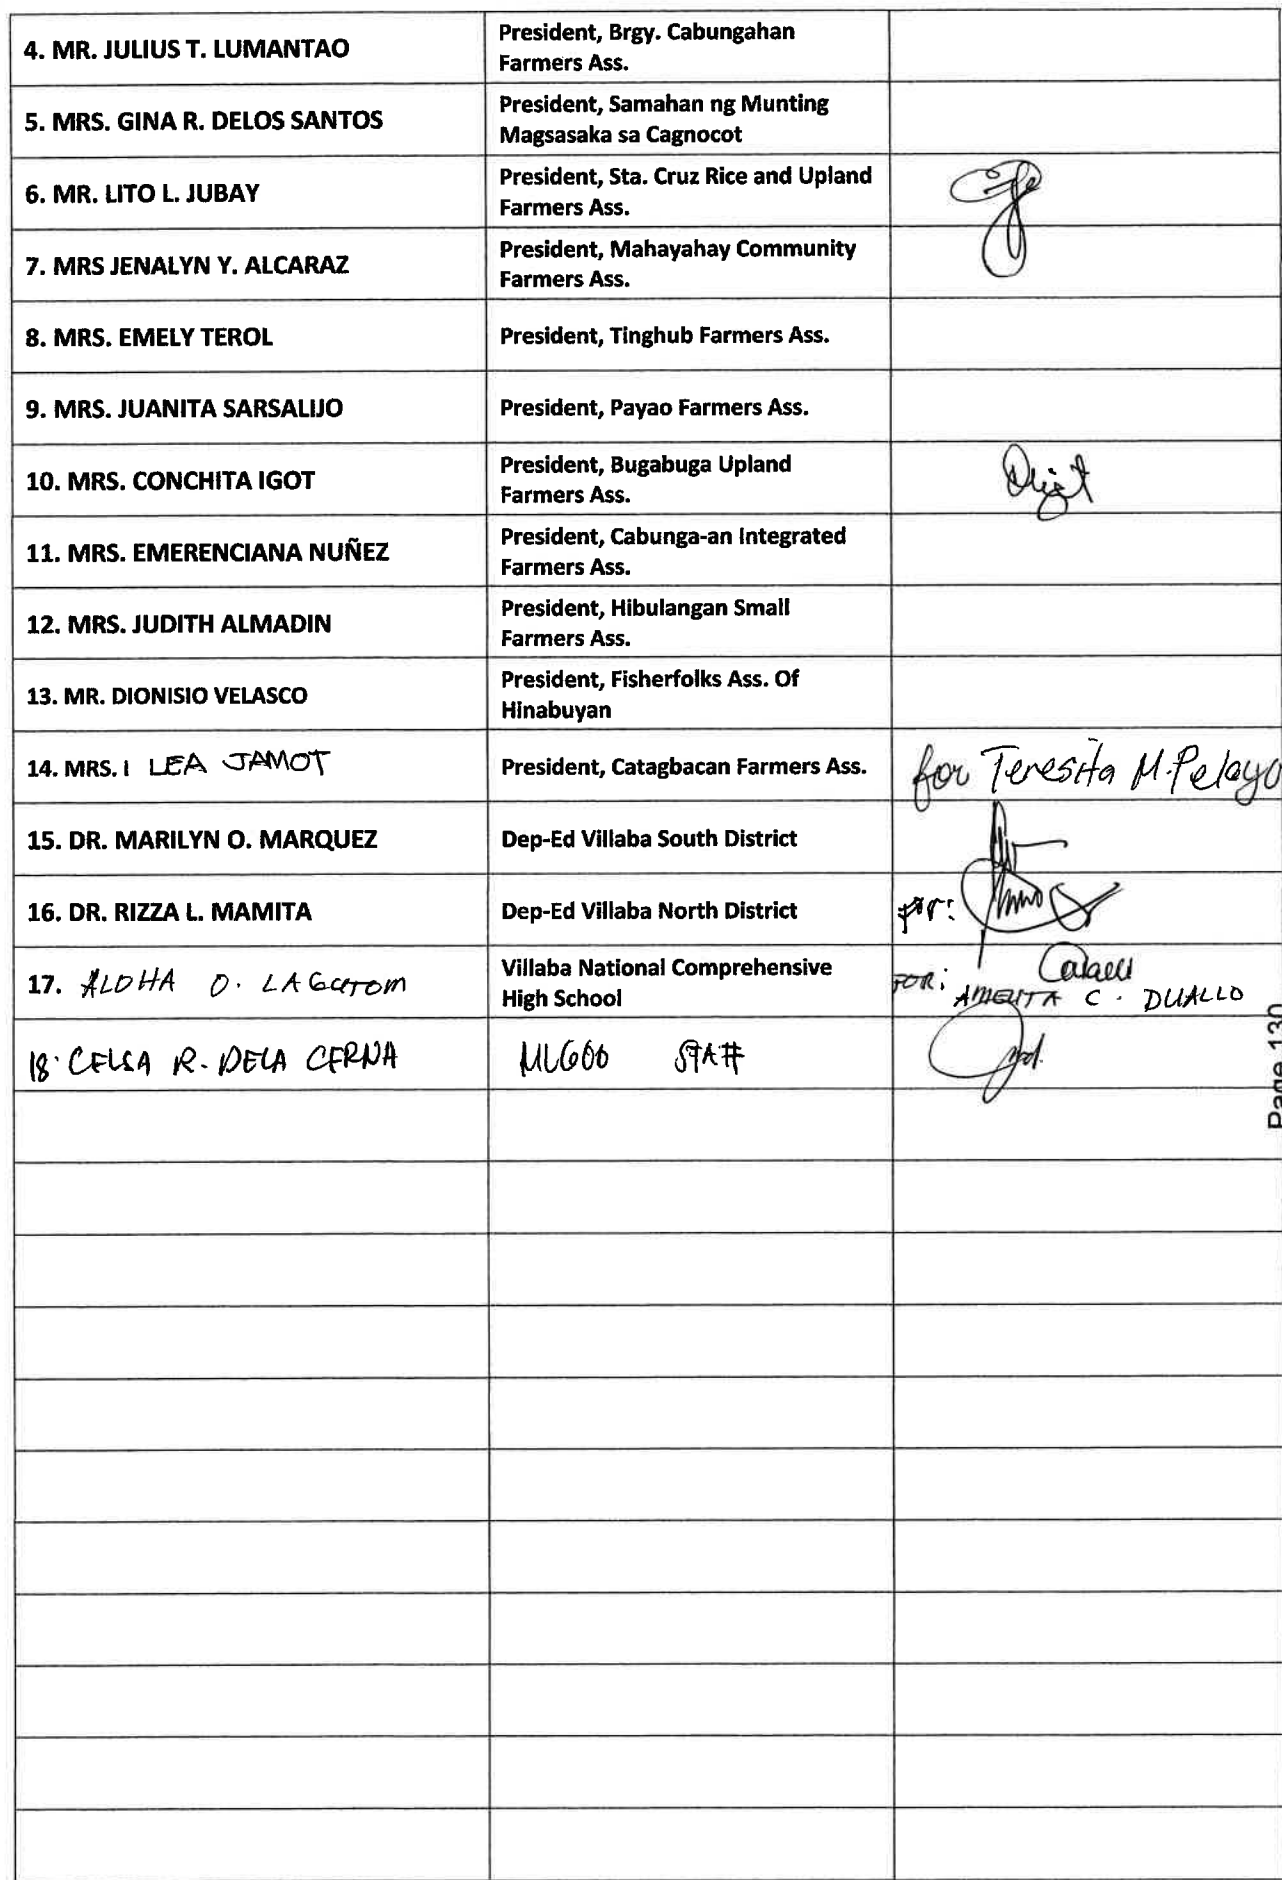 4. MR. JULIUS T. LUMANTAO
President, Brgy. Cabungahan
Farmers Ass.
5. MRS. GINA R. DELOS SANTOS
President, Samahan ng Munting
Magsasaka sa Cagnocot
6. MR. LITO L. JUBAY
President, Sta. Cruz Rice and Upland
Farmers Ass.
7. MRS JENALYN Y. ALCARAZ
President, Mahayahay Community
Farmers Ass.
8. MRS. EMELY TEROL
President, Tinghub Farmers Ass.
9. MRS. JUANITA SARSALIJO
President, Payao Farmers Ass.
10. MRS. CONCHITA IGOT
President, Bugabuga Upland
Farmers Ass.
11. MRS. EMERENCIANA NUÑEZ
President, Cabunga-an Integrated
Farmers Ass.
12. MRS. JUDITH ALMADIN
President, Hibulangan Small
Farmers Ass.
13. MR. DIONISIO VELASCO
President, Fisherfolks Ass. Of
Hinabuyan
14. MRS. LEA JAMOT
President, Catagbacan Farmers Ass.
for Teresita M. Pelayo
15. DR. MARILYN O. MARQUEZ
Dep-Ed Villaba South District
16. DR. RIZZA L. MAMITA
Dep-Ed Villaba North District
for:
17. ALOHA O. LAGUTOM
Villaba National Comprehensive
High School
FOR:
AMELITA C. DUALLO
18. CELSA R. DELA CERNA
MLGOO STAFF
Page 130